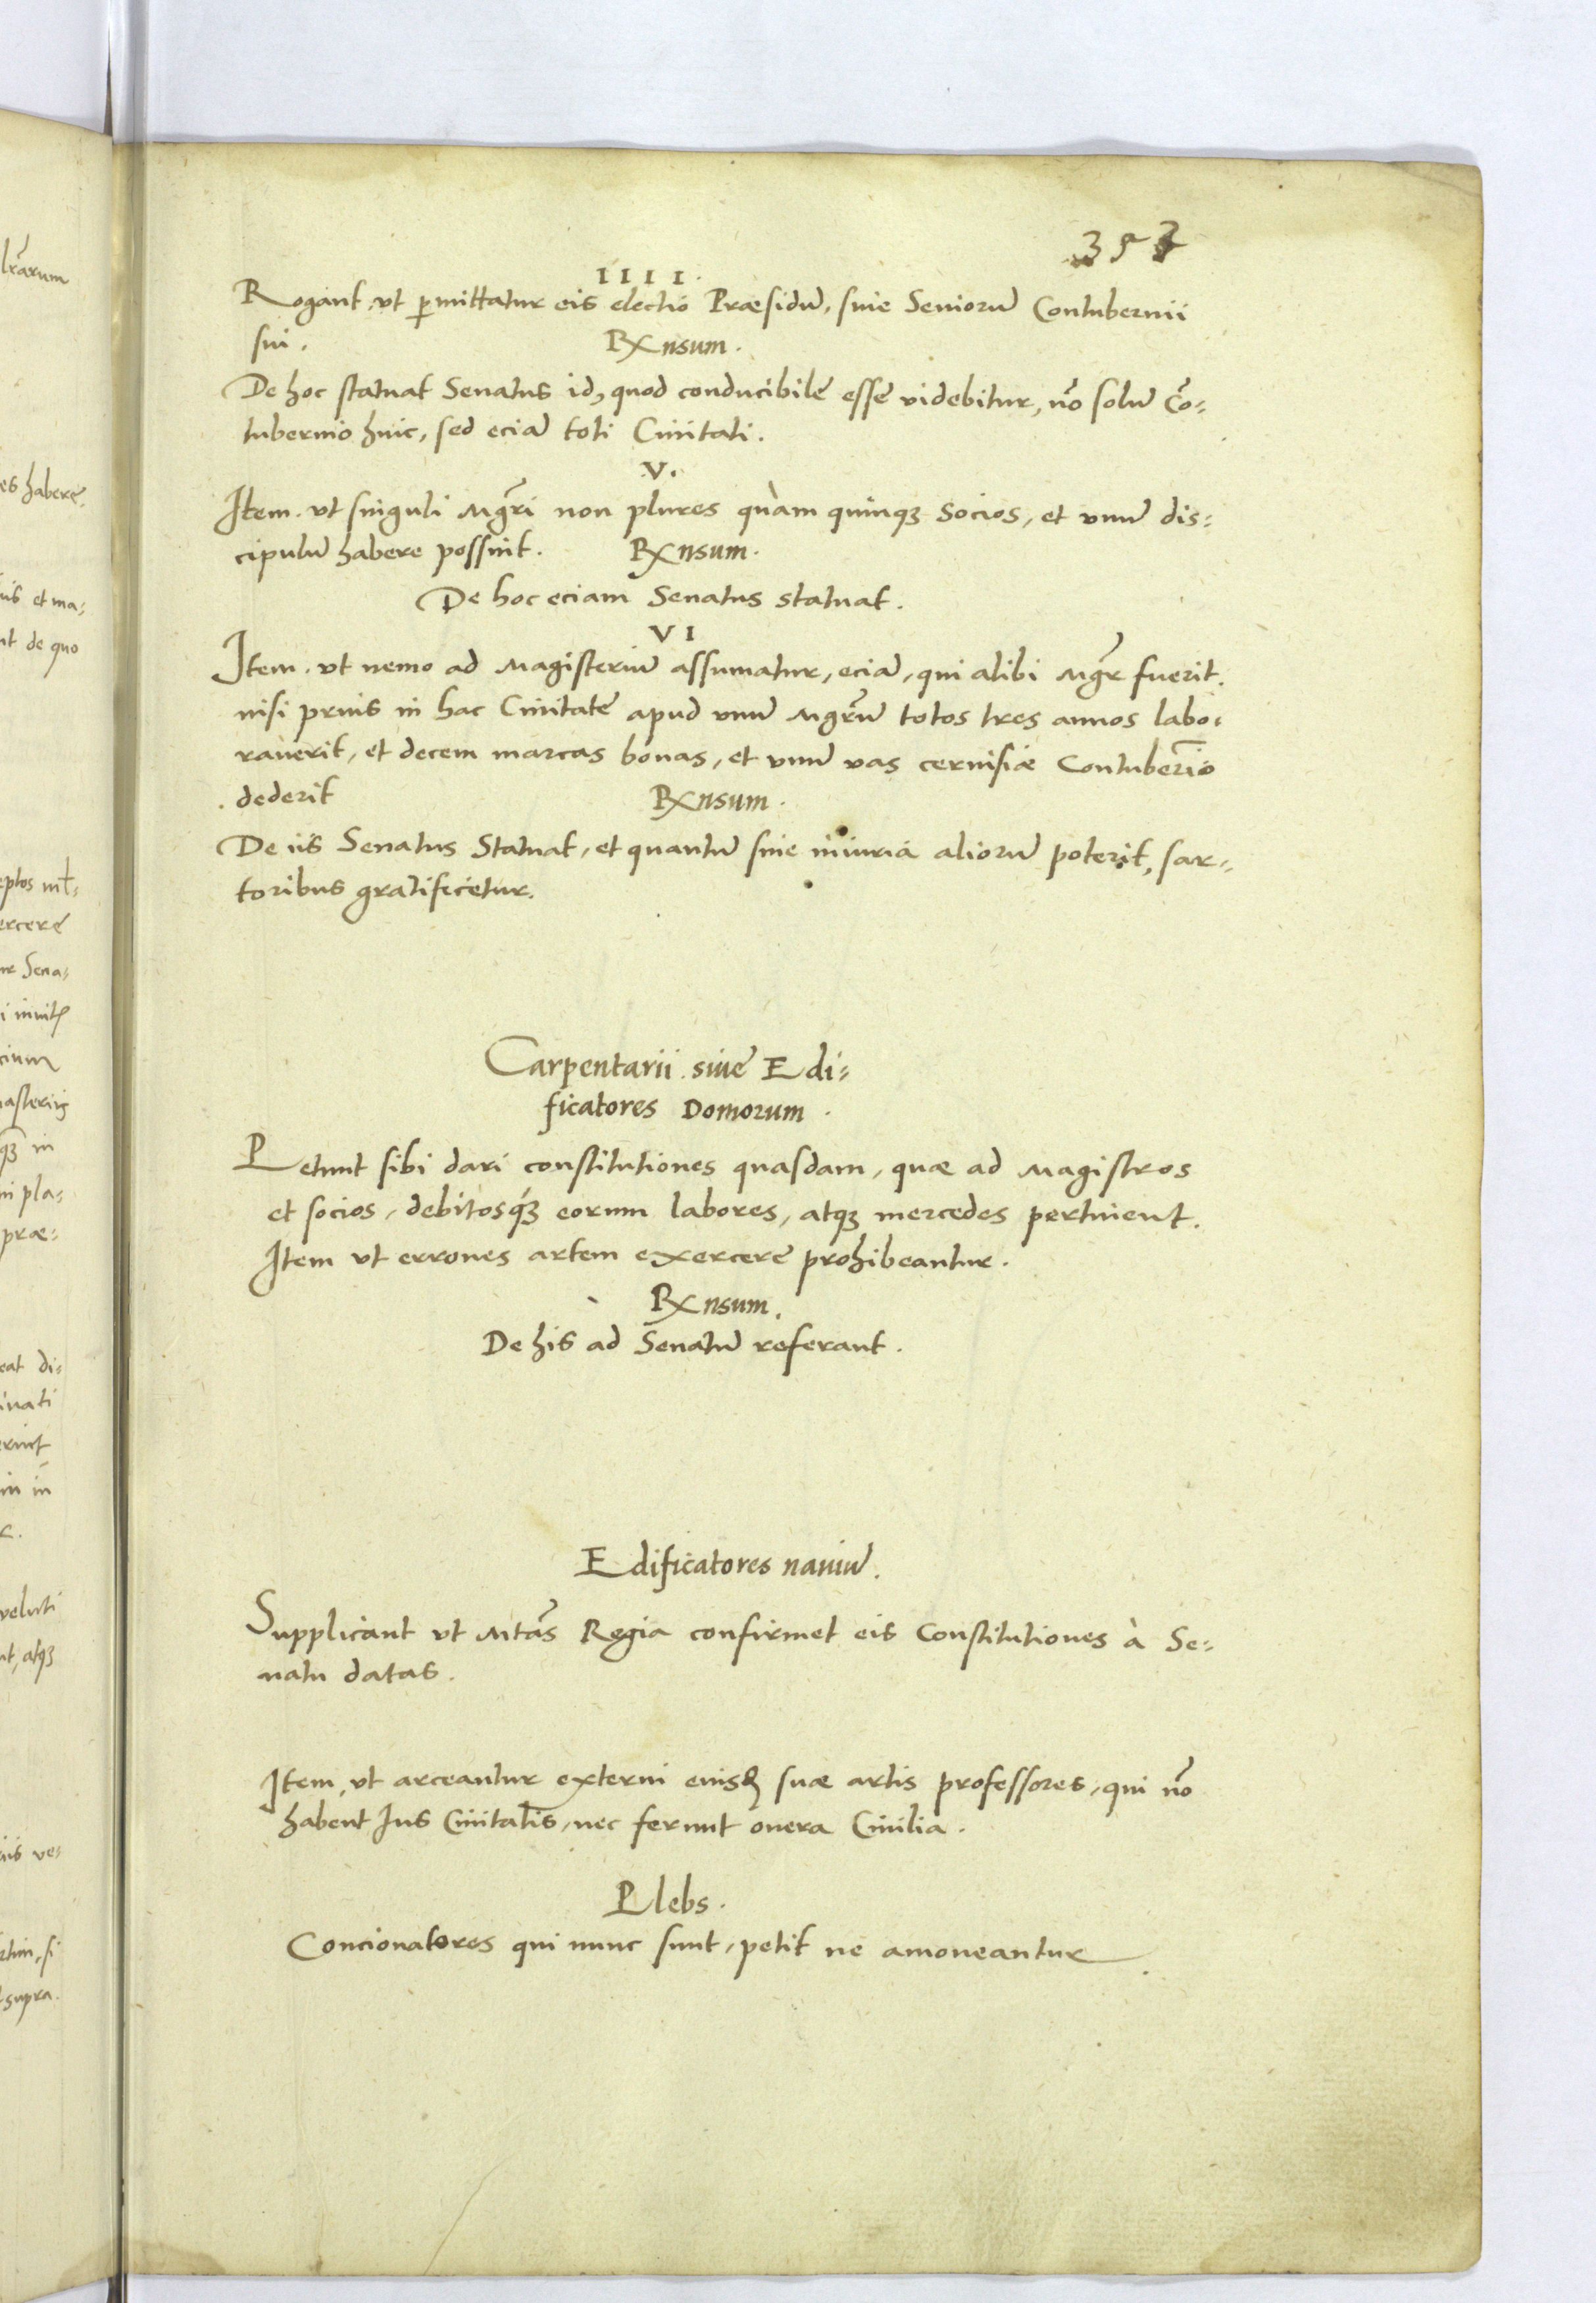 353
IIII.
Rogant, ut p̱mittatur eis electio Præsidū, siue Seniorū Contubernii
sui.
Rxnsum.
De hoc statuat Senatus id, quod conducibile esse videbitur, nō solū Cō-
tubernio huic, sed eciā toti Ciuitati.
V.
Item. vt singuli Mgr̄i non plures quàm quinqꝫ Socios, et vnū dis-
cipulū habere possint. Rxnsum.
De hoc eciam Senatus statuat.
VI
Item. vt nemo ad Magisteriū assumatur, eciā, qui alibi Mgr̄ fuerit.
nisi prius in hac Ciuitate apud vnū Mgr̄ū totos tres annos labo-
rauerit, et decem marcas bonas, et vnū vas ceruisiæ Contuber̄io
dederit Rxnsum.
De iis Senatus Statuat, et quantū sine iniuria aliorū poterit, sar-
toribus gratificetur.
Carpentarii siue Edi-
ficatores Domorum.
Petunt sibi dari constitutiones quasdam, quæ ad Magistros
et socios, debitosqꝫ eorum labores, atqꝫ mercedes pertinent.
Item vt errones artem exercere prohibeantur.
Rxnsum.
De his ad Senatū referant.
Edificatores nauiū.
Supplicant vt Mtās Regia confirmet eis Constitutiones à Se-
natu datas.
Item, vt arceantur externi eiusꝗ suæ artis professores, qui nō
habent Ius Ciuitatis, nec ferunt onera Ciuilia.
Plebs.
Concionatores qui nunc sunt, petit ne amoueantur.